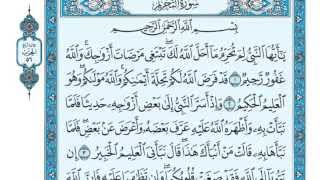 سُورَةُ التَّحْرِيمِ
بِسْمِ ٱللَّهِ ٱلرَّحْمَٰنِ ٱلرَّحِيمِ
يَٰٓأَيُّهَا ٱلنَّبِىُّ لِمَ تُحَرِّمُ مَآ أَحَلَّ ٱللَّهُ لَكَ تَبْتَغِى مَرْضَاتَ أَزْوَٰجِكَ وَٱللَّهُ
غَفُورٌ رَّحِيمٌ ١ قَدْ فَرَضَ ٱللَّهُ لَكُمْ تَحِلَّةَ أَيْمَٰنِكُمْ وَٱللَّهُ مَوْلَىٰكُمْ وَهُوَ
ٱلْعَلِيمُ ٱلْحَكِيمُ ٢ وَإِذْ أَسَرَّ ٱلنَّبِىُّ إِلَىٰ بَعْضِ أَزْوَٰجِهِۦ حَدِيثًا فَلَمَّا
نَبَّأَتْ بِهِۦ وَأَظْهَرَهُ ٱللَّهُ عَلَيْهِ عَرَّفَ بَعْضَهُۥ وَأَعْرَضَ عَنۢ بَعْضٍ فَلَمَّا
نَبَّأَهَا بِهِۦ قَالَتْ مَنْ أَنۢبَأَكَ هَٰذَا قَالَ نَبَّأَنِىَ ٱلْعَلِيمُ ٱلْخَبِيرُ ٣ إِن
تَتُوبَآ إِلَى ٱللَّهِ فَقَدْ صَغَتْ قُلُوبُكُمَا وَإِن تَظَٰهَرَا عَلَيْهِ فَإِنَّ ٱللَّهَ
الحزب
٥٦